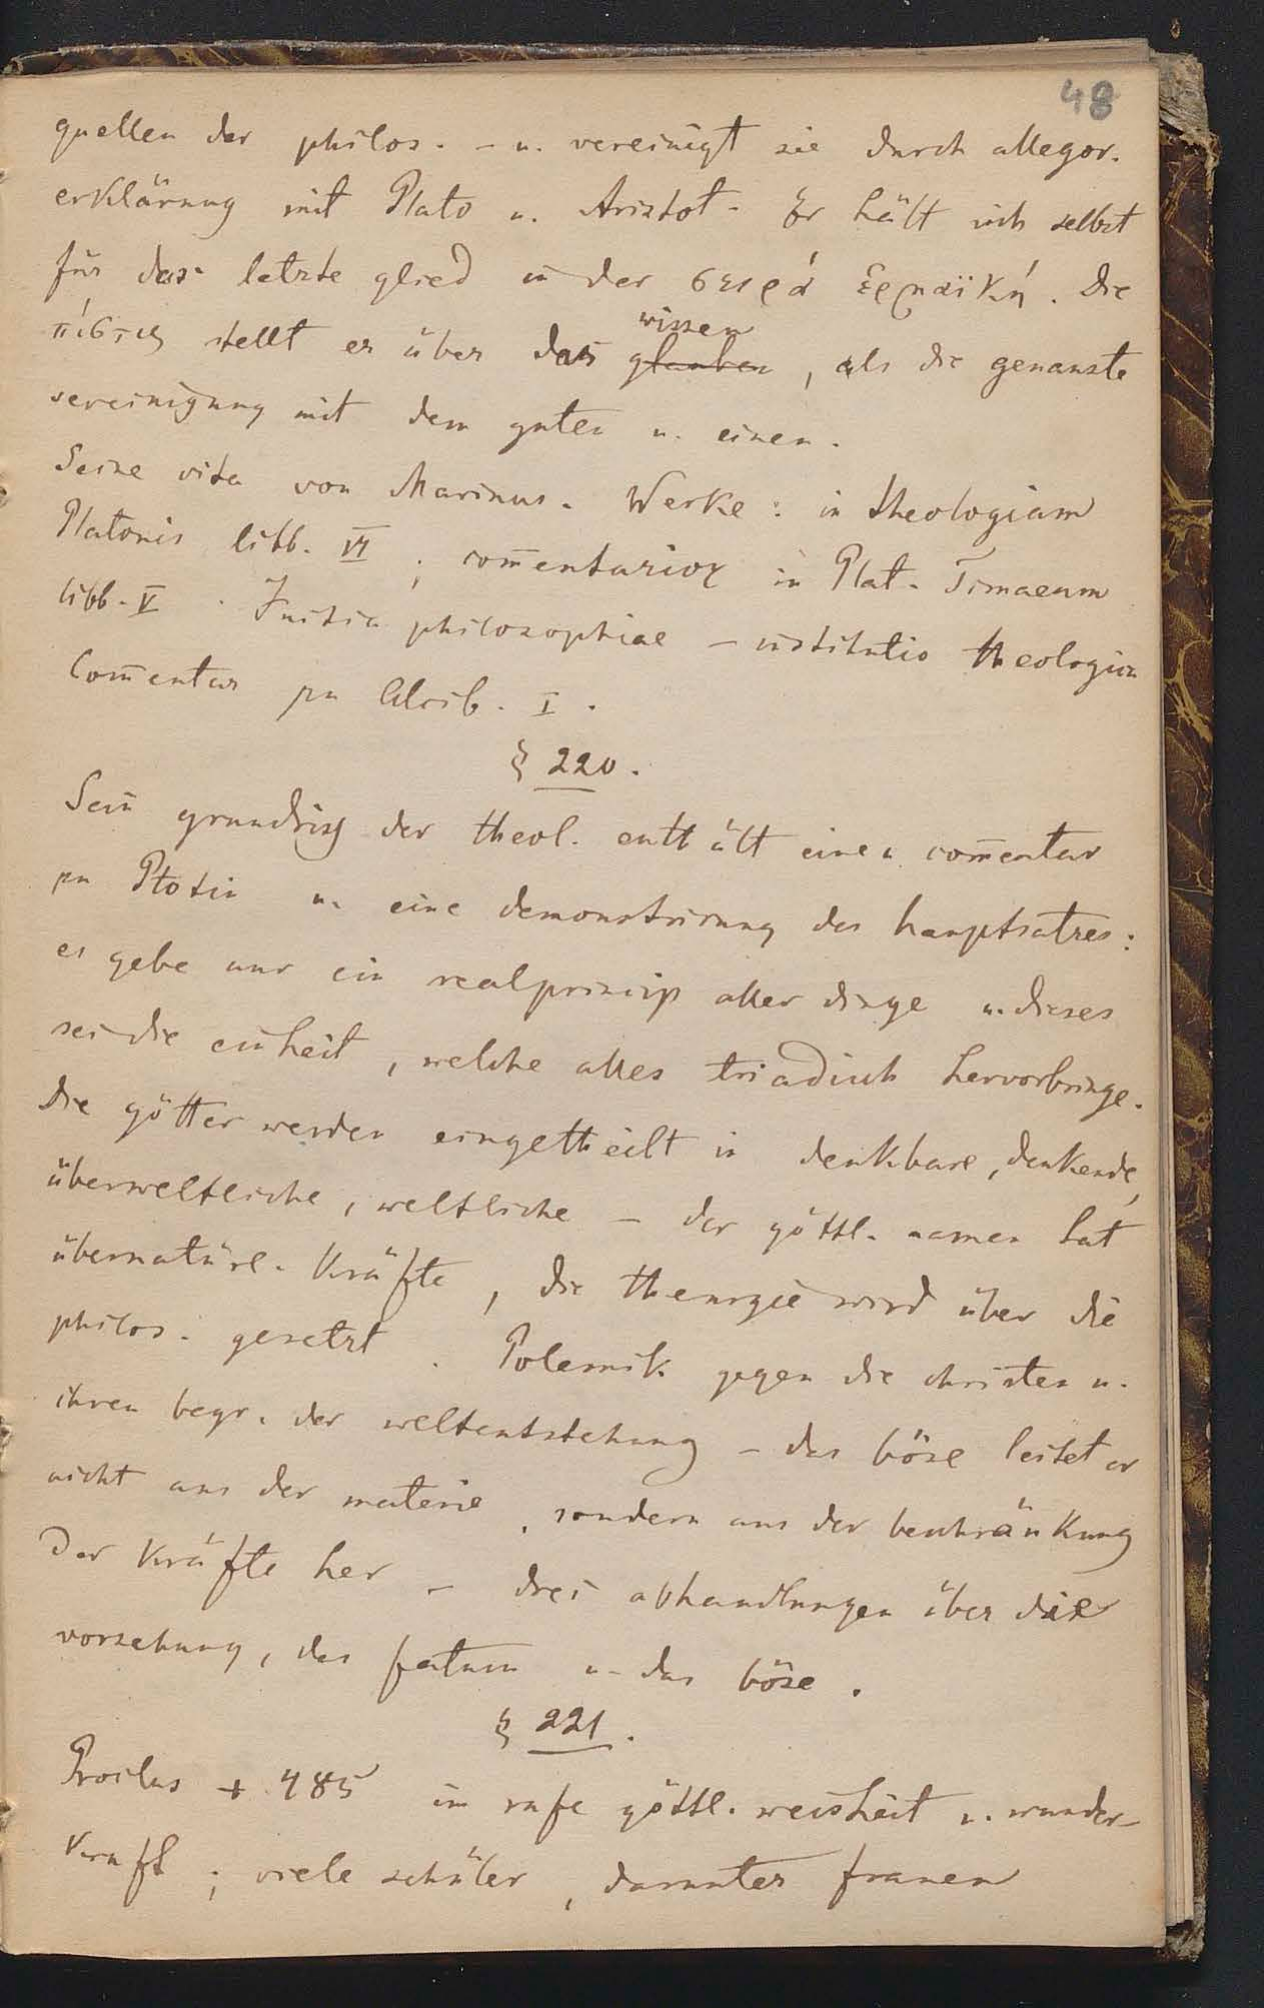 48
quellen der philos. - u. vereinigt sie durch allegor.
erklärung mit Plato u. Aristot. Er hält sich selbst
für das letzte glied in der σειρά ἑρμαϊκή. Die
πίστις stellt er über das glauben wissen, als die genauste
vereinigung mit dem guten u. einen.
Seine vita von Marinus. Werke: in theologiam
Platonis libb. VI; com̄entarior in Plat. Timaeum
libb. V. Initia philosophiae - institutio theologica
Com̄entar zu Alcib. I.
§ 220.
Sein grundriß der theol. enthält einen com̄entar
zu Plotin u. eine demonstrirung des hauptsatzes:
es gebe nur ein realprincip aller dinge u. dieses
sei die einheit, welche alles triadisch hervorbringe.
Die götter werden eingetheilt in denkbare, denkende,
überweltliche, weltliche - der göttl. namen hat
übernatürl. Kräfte, die theurgie wird über die
philos. gesetzt. Polemik gegen die christen u.
ihren begr. der weltentstehung - das böse leitet er
nicht aus der materie, sondern aus der beschränkung
der Kräfte her - drei abhandlungen über die
vorsehung, das fatum u. das böse.
§ 221.
Proclus + 485 im rufe göttl. weisheit u. wunder-
kraft; viele schüler, darunter frauen